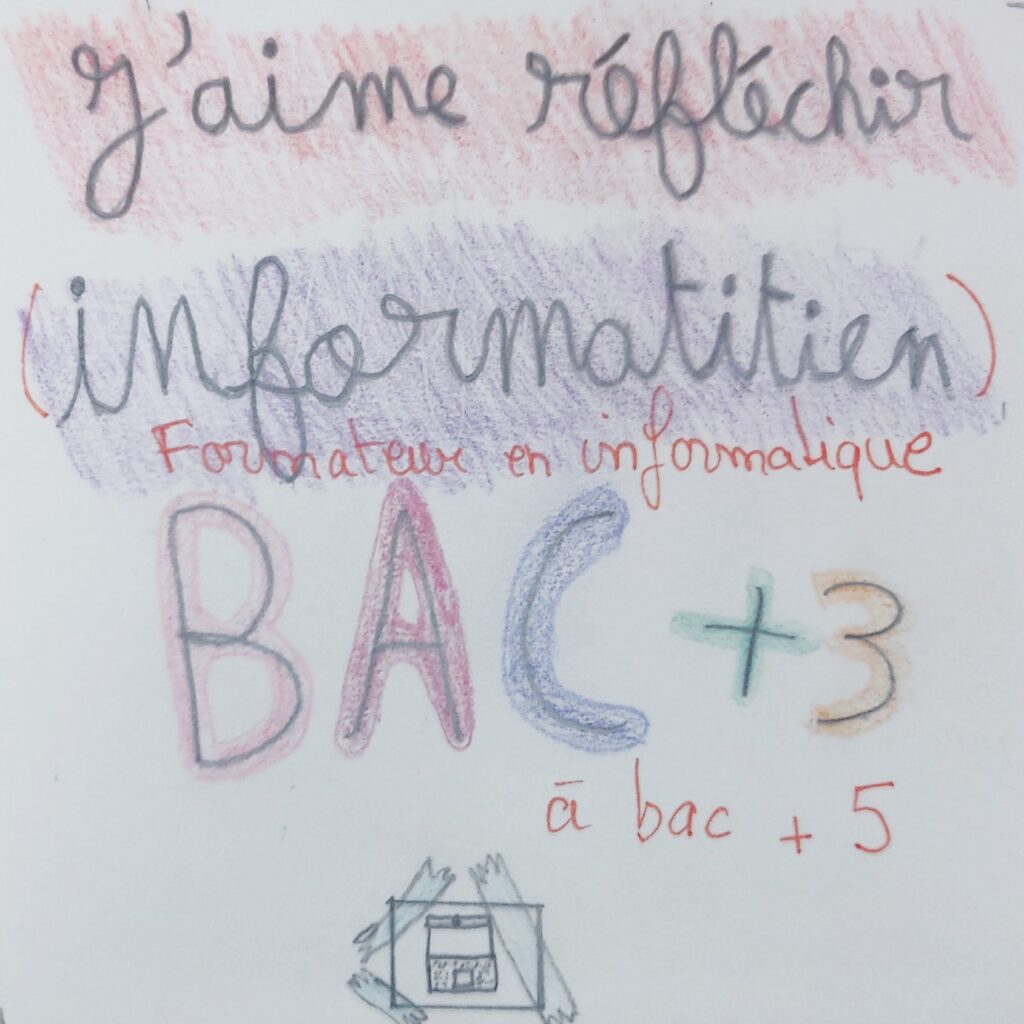 J'aime réfléchir
(informatitien)
Formateur en informatique
BAC + 3
à bac + 5